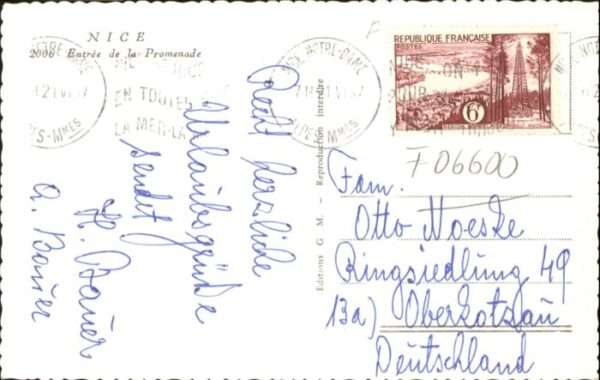 NICE
2006 Entrée de la Promenade
NICE NOTRE-DAME
EN TOUTES
LA MER
ALPES-MMES
REPUBLIQUE FRANÇAISE
POSTES
6F
F 06600
Recht herzliche
Urlaubsgrüße
sendet
H. Bauer
A. Bauer
Editions G M - Reproduction interdite
Fam.
Otto Noeske
Ringsiedlung 49
13a) Oberkotzau
Deutschland